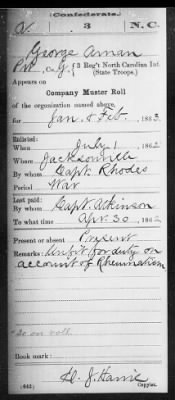 Confederate.
3 N.C.
George Aman
Pvt., Co. G, 3 Reg't North Carolina Inf.
(State Troops.)
Appears on
Company Muster Roll
of the organization named above,
for Jan & Feb., 1863
Enlisted:
When July 1, 1862
Where Jacksonville
By whom Capt. Rhodes
Period War
Last paid:
By whom Capt. Atkinson
To what time Apr. 30, 186
Present or absent Present
Remarks: Unfit for duty on
account of Rheumatism
*So on roll
Book mark:
(642)
Copyist.